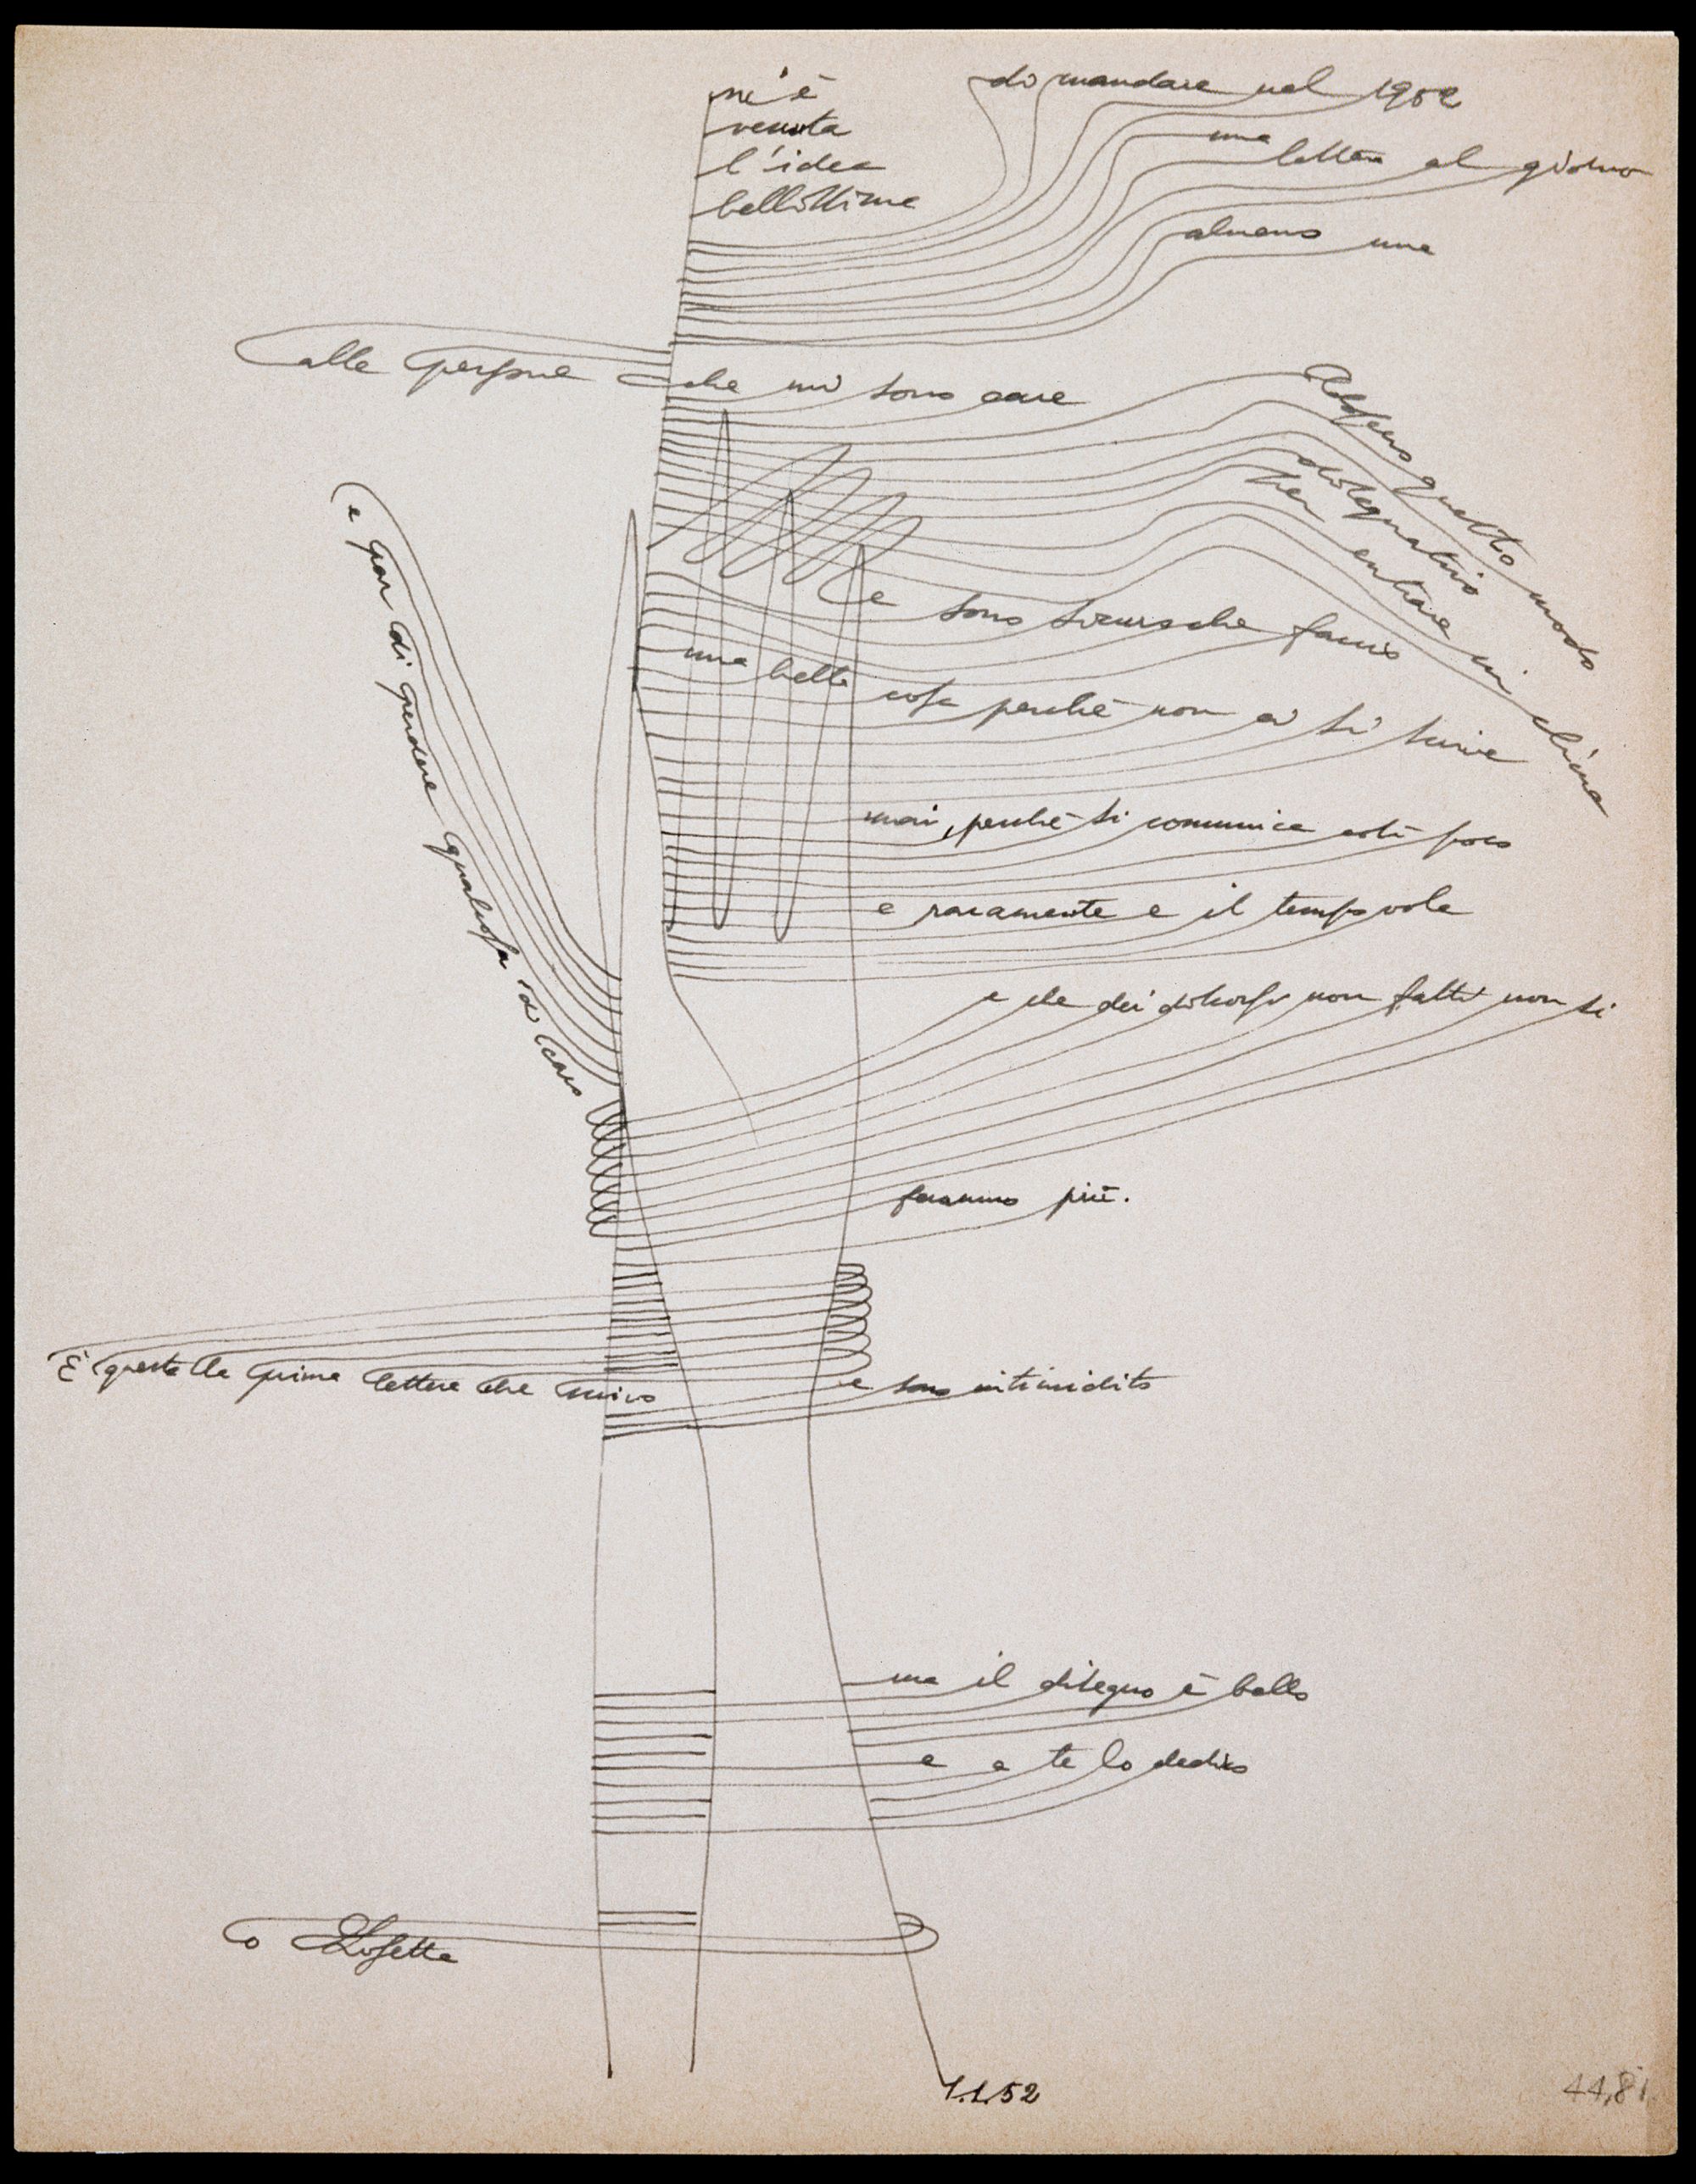 m'è
venuta
l'idea
bellissima
di mandare nel 1952
una
lettera al giorno
almeno una
alle persone che mi sono care
Adopero questo modo
disegnativo
per entrare in clima
e sono sicuro che faccio
una bella cosa perchè non ci si scrive
mai, perchè si comunica così poco
e raramente e il tempo vola
e che dei discorsi non fatti non si
faranno più.
e per di perdere qualcosa di caro
È questa la prima lettera che scrivo
e sono intimidito
ma il disegno è bello
e a te lo dedico
o Lisetta
1.1.52
44,81